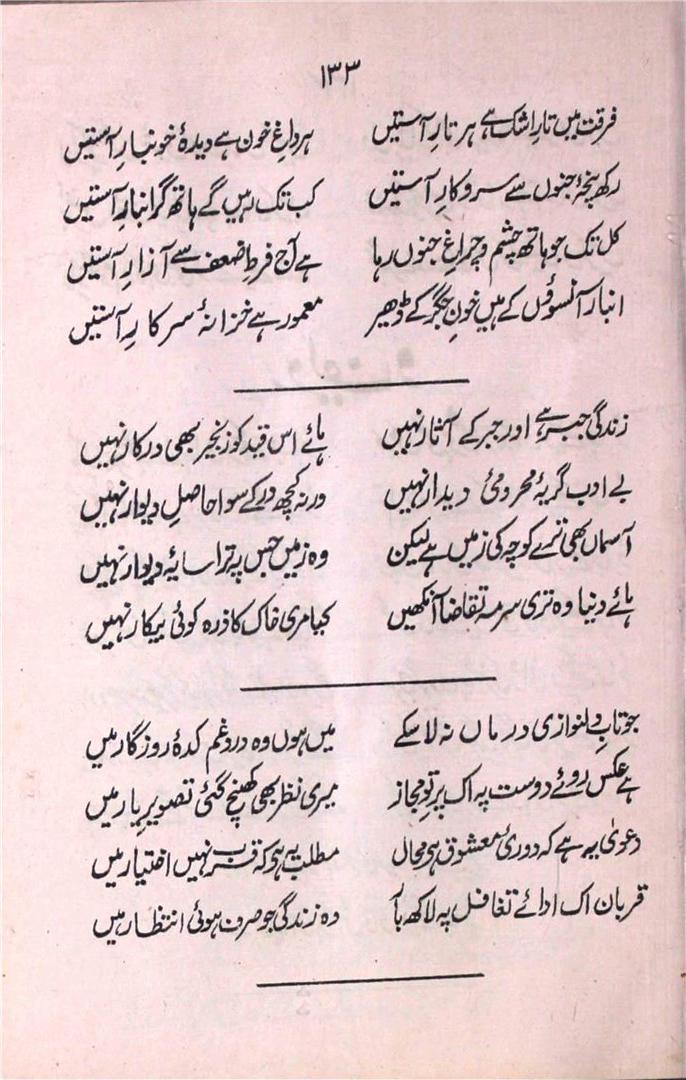 ۱۳۳
فرقت میں تارِ اشک ہے ہر تارِ آستیں ہر داغِ خون ہے دیدۂ خونبارِ آستیں
رکھ پنجۂ جنوں سے سروکارِ آستیں کب تک رہیں گے ہاتھ گرانبارِ آستیں
کل تک جو ہاتھ چشم و چراغِ جنوں رہا ہے آج فرطِ ضعف سے آزارِ آستیں
انبار آنسوؤں کے ہیں خونِ جگر کے ڈھیر معمور ہے خزانۂ سرکارِ آستیں
زندگی جبر ہے اور جبر کے آثار نہیں ہائے اس قید کو زنجیر بھی درکار نہیں
بے ادب گریۂ محرومئ دیدار نہیں ورنہ کچھ در کے سوا حاصلِ دیوار نہیں
آسماں بھی ترے کوچہ کی زمیں ہے لیکن وہ زمیں جس پہ ترا سایۂ دیوار نہیں
ہائے دنیا وہ تری سرمہ تقاضا آنکھیں کیا مری خاک کا ذرہ کوئی بیکار نہیں
جو تابِ دلنوازی درماں نہ لا سکے میں ہوں وہ درد غم کدۂ روزگار میں
ہے عکس روئے دوست پہ اک پرتوِ مجاز میری نظر بھی کھنچ گئی تصویرِ یار میں
دعویٰ یہ ہے کہ دوریٔ معشوق ہی محال مطلب یہ ہی کہ قرب نہیں اختیار میں
قربان اک ادائے تغافل پہ لاکھ بار وہ زندگی جو صرف ہوئی انتظار میں